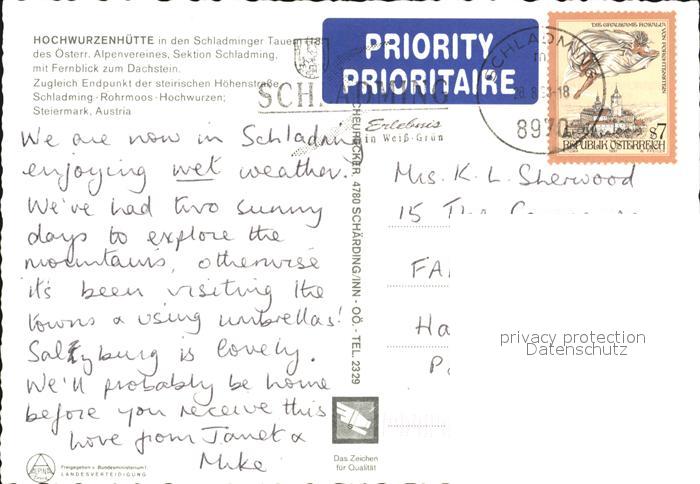 HOCHWURZENHÜTTE in den Schladminger Tauern
des Österr. Alpenvereines, Sektion Schladming,
mit Fernblick zum Dachstein.
Zugleich Endpunkt der steirischen Höhenstraße
Schladming-Rohrmoos-Hochwurzen;
Steiermark, Austria
PRIORITY
PRIORITAIRE
SCHLADMING
Erlebnis
in Weiß-Grün
SCHLADMING
8970
DIE GRAUSAME ROSALIA VON FORCHTENSTEIN
S7
REPUBLIK ÖSTERREICH
We are now in Schladming
enjoying wet weather.
We've had two sunny
days to explore the
mountains, otherwise
it's been visiting the
towns & using umbrellas!
Salzburg is lovely.
We'll probably be home
before you receive this
Love from Janet &
Mike
Mrs. K. L. Sherwood
15 The
FA
Ha
P
SCHEURECKER 4780 SCHÄRDING/INN - OÖ. - TEL. 2329
privacy protection
Datenschutz
Das Zeichen
für Qualität
ALPINA
Freigegeben v. Bundesministerium f.
LANDESVERTEIDIGUNG